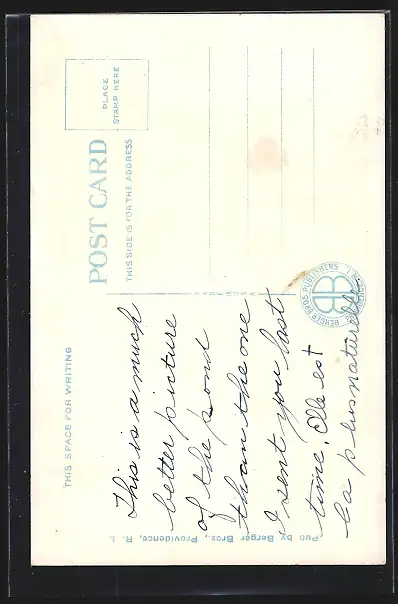 THIS SPACE FOR WRITING
POST CARD
THIS SIDE IS FOR THE ADDRESS
PLACE
STAMP HERE
This is a much
better picture
of the pond
than the one
I sent you last
time. Elle est
la plus naturelle
MADE IN U.S.A.
BERGER BROS. PUBLISHERS
BB
Pub by Berger Bros., Providence, R. I.